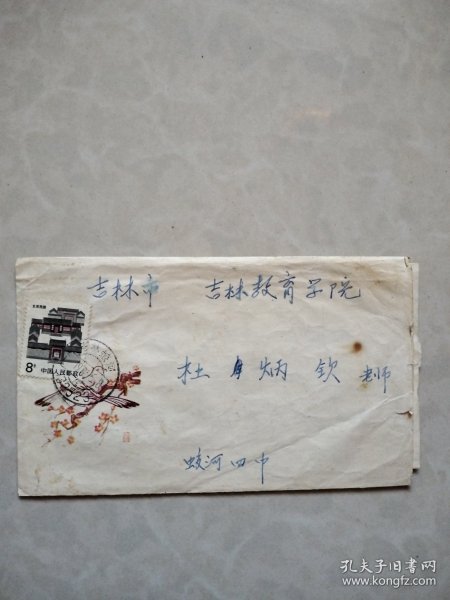 吉林市 吉林教育学院
杜 炳钦 老师
蛟河四中
北京民居
8分
中国人民邮政
孔夫子旧书网
www.kongfz.com